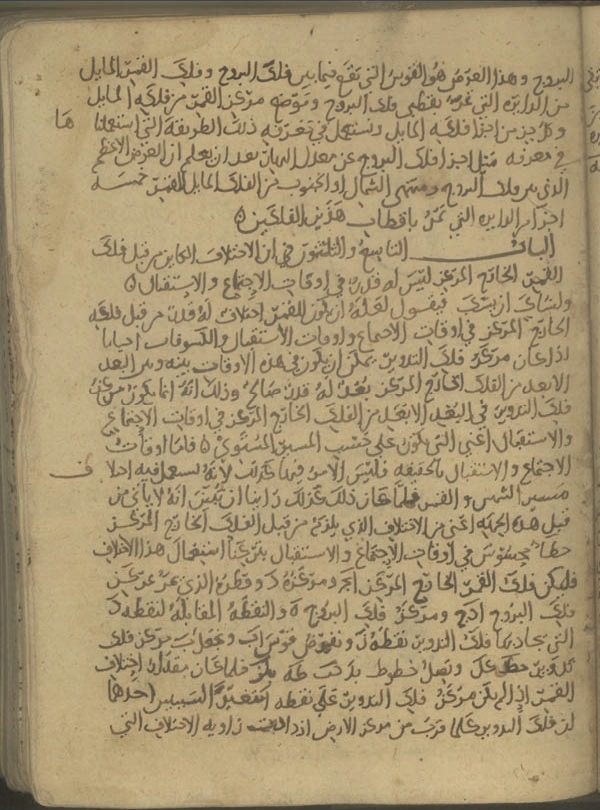 البروج وهذا العرض هو القوس التي تقع فيما بين فلك البروج وفلك القمر المايل
من الدايره التي تمر بقطبي فلك البروج وموضع مركز القمر من فلكه المايل
وكل جز من اجزا فلكه المايل ونستعمل في معرفة ذلك الطريقة التي استعملنا ها
في معرفه ميل اجزا فلك البروج عن معدل النهار بعد ان يعلم ان العرض الاعظم
الذي بين فلك البروج ومنتهى الشمال او الجنوب من الفلك المايل للقمر خمسه
اجزا من الدايره التي تمر باقطاب هذين الفلكين
الباب التاسع والثلثون في ان الاختلاف الكاين من قبل فلك
القمر الخارج المركز ليس له قدر في اوقات الاجتماع والاستقبال
ولشاك ان يشك فيقول لعله ان يكون للقمر اختلاف له قدر من قبل فلكه
الخارج المركز في اوقات الاجتماع واوقات الاستقبال والكسوفات احيانا
اذ كان مركز فلك التدوير يمكن ان يكون في هذه الاوقات بينه وبين البعد
الابعد من الفلك الخارج المركز بعد له قدر صالح وذلك انه انما يكون مركز
فلك التدوير في البعد الابعد من الفلك الخارج المركز في اوقات الاجتماع
والاستقبال اعني التي تكون على حسب المسير المستوي فاما اوقات
الاجتماع والاستقبال بالحقيقه فليس الامر فيها كذلك لانه يستعمل فيه اختلاف
مسير الشمس والقمر فلما كان ذلك كذلك راينا ان نبين انه لا ياتي من
قبل هذه الجهه اعني من الاختلاف الذي يلزم من قبل الفلك الخارج المركز
خطا محسوس في اوقات الاجتماع والاستقبال بتركنا استعمال هذا الاختلاف
فليكن فلك القمر الخارج المركز ابج ومركزه د وقطره الذي يمر بمركز
فلك البروج ادج ومركز فلك البروج ه والنقطه المقابله لنقطه د
التي يحاذيها فلك التدوير نقطه ز ونفرض قوس اب ونجعل ب مركز فلك
تدوير ونصل خطوط فلما كان مقدار اختلاف
القمر اذا لم يكن مركز فلك التدوير على نقطه ا يتغير لسببين احدهما
لان فلك التدوير كلما قرب من مركز الارض ازدادت زاويه الاختلاف التي